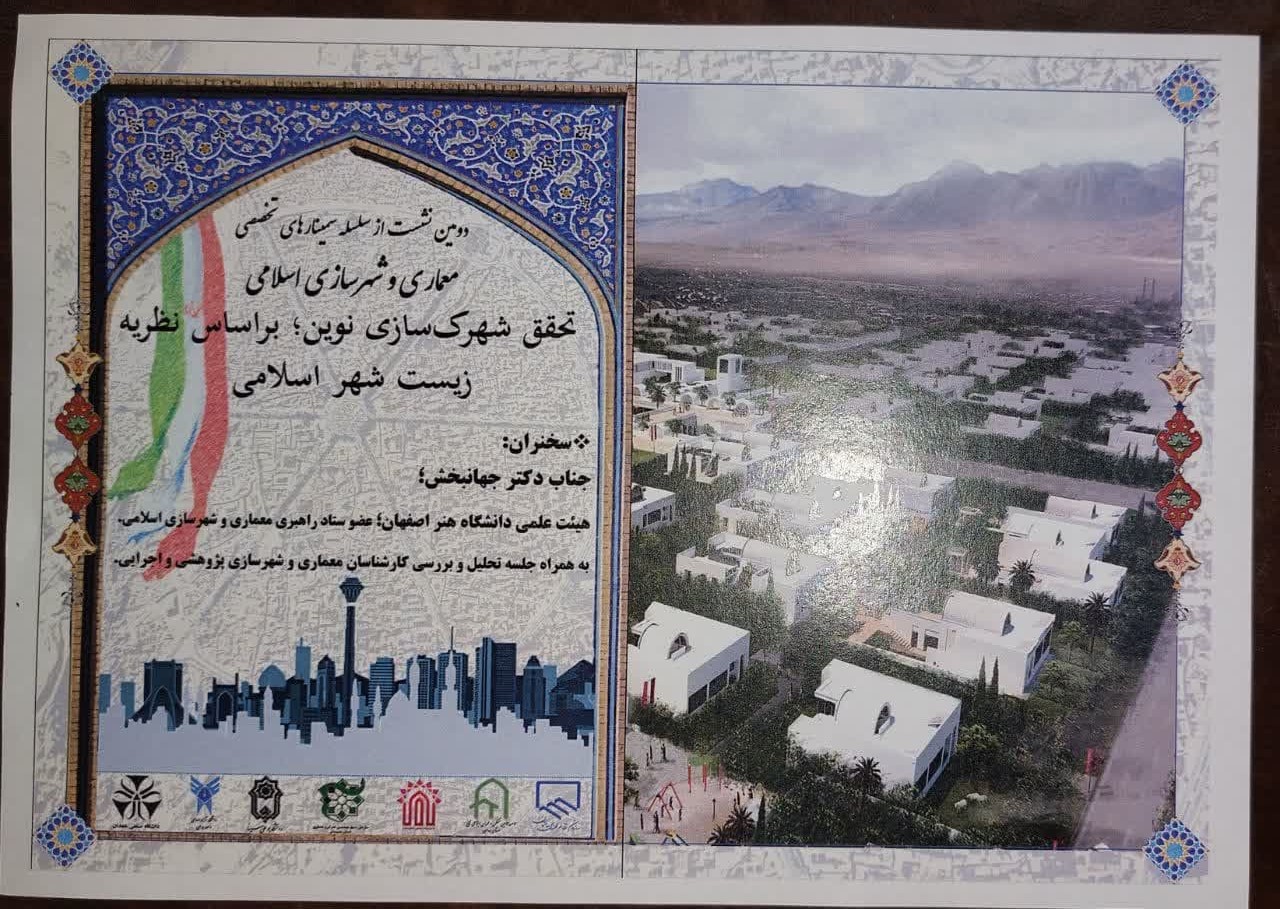 دومین نشست از سلسله سمینارهای تخصصی
معماری و شهرسازی اسلامی
تحقق شهرک‌سازی نوین؛ براساس نظریه
زیست شهر اسلامی
❖سخنران:
جناب دکتر جهانبخش؛
هیئت علمی دانشگاه هنر اصفهان؛ عضو ستاد راهبری معماری و شهرسازی اسلامی.
به همراه جلسه تحلیل و بررسی کارشناسان معماری و شهرسازی پژوهشی و اجرایی.
دانشگاه صنعتی همدان